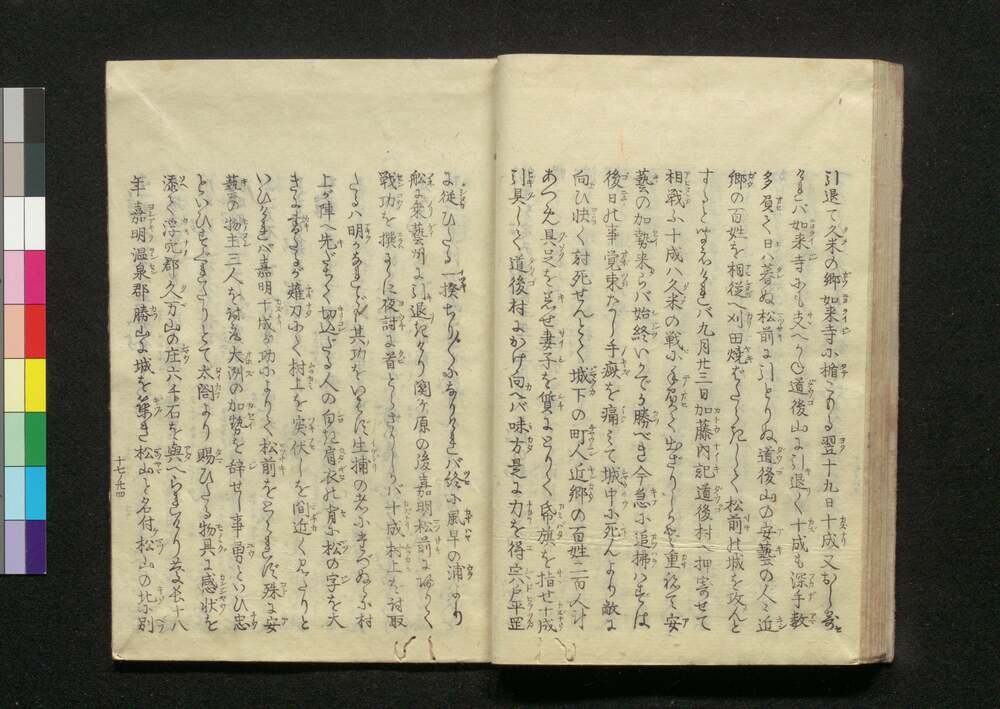 引退て久米の郷如来寺に楯こもる翌十九日十成又おし寄
けれバ如来寺にも支へかね道後山に引退く十成も深手数
多負て日ハ暮ぬ松前に引とりぬ道後山の安藝の人々近
郷の百姓を相従へ刈田焼ばたらきして松前の城を攻んと
すと聞えけれバ九月廿三日加藤内記道後村へ押寄せて
相戦ふ十成ハ久米の戦に手負て出ざりしかど重ねて安
藝の加勢来らバ始終いかでか勝べき今急に追掃ハずバ
後日の事覚束なし手疵を痛ミて城中に死んより敵に
向ひ快く討死せんとて城下の町人近郷の百姓二百人計
あつめ具足を著せ妻子を質にとりて帋旗を指せ十成
引具して道後村にかけ向へバ味方是に力を得宍戸平岡
に従ひたる一揆ちり〴〵になりけれバ終に風早の浦より
船に乗藝州に引退きけり関ヶ原の後嘉明松前に帰りて
戦功を撰まるに夜討に首とらざりしバ十成村上を討取
たるハ明かなれども其功をいはず生捕の者に尋ぬるに村
上が陣へ先だちて切込たる人の白き肩衣の背に松の字を大
きくするしたるが薙刀にて村上を突伏しを間近く見たりと
いひけれバ嘉明十成が功によりて松前をとられず殊に安
藝の物主三人を討事大洲の加勢を辞せし事勇といひ忠
といひすぐれたりとて太閤より賜ひたる物具に感状を
添て浮穴郡久万山の庄六千石を與へられけり慶長十八
年嘉明温泉郡勝山に城を築き松山と名付松山の北に別
十七ノ四